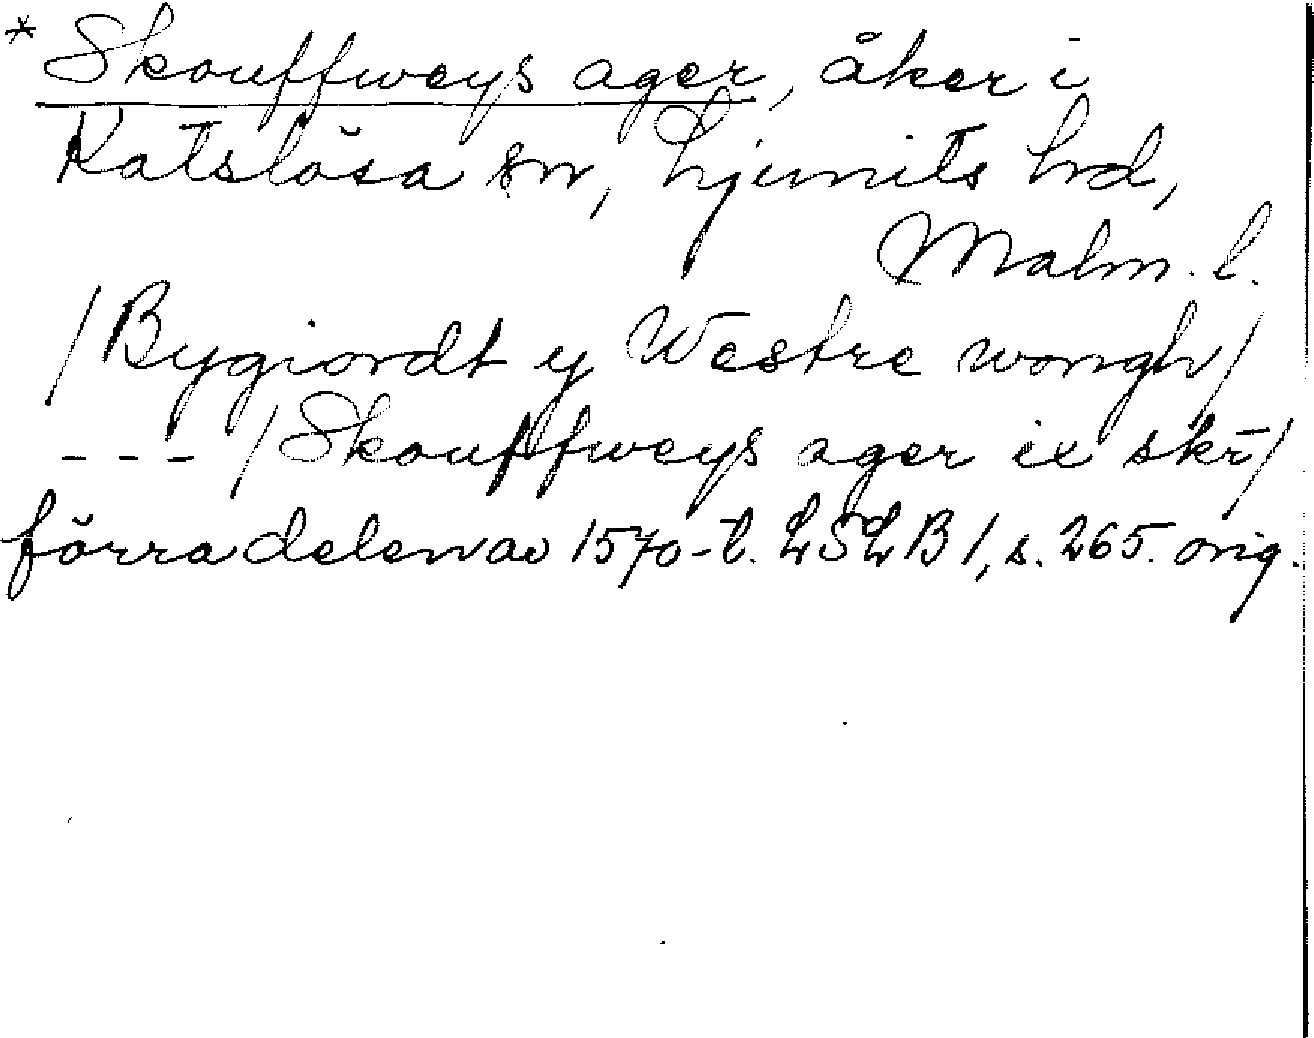 * Skouffweys ager, åker i
Katslösa sn, Ljunits hd,
Malm. l.
/Bygiordt y Westre wongh/
--- /Skouffweys ager ix skr̄/
förra delen av 1570-t. LSLB 1, s. 265. orig.